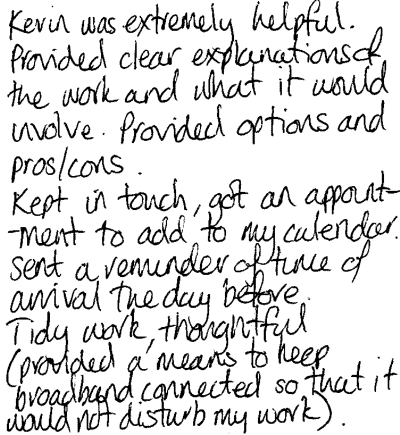 Kevin was extremely helpful.
Provided clear explanations of
the work and what it would
involve. Provided options and
pros/cons.
Kept in touch, got an appoint-
-ment to add to my calendar.
Sent a reminder of time of
arrival the day before.
Tidy work, thoughtful
(provided a means to keep
broadband connected so that it
would not disturb my work).